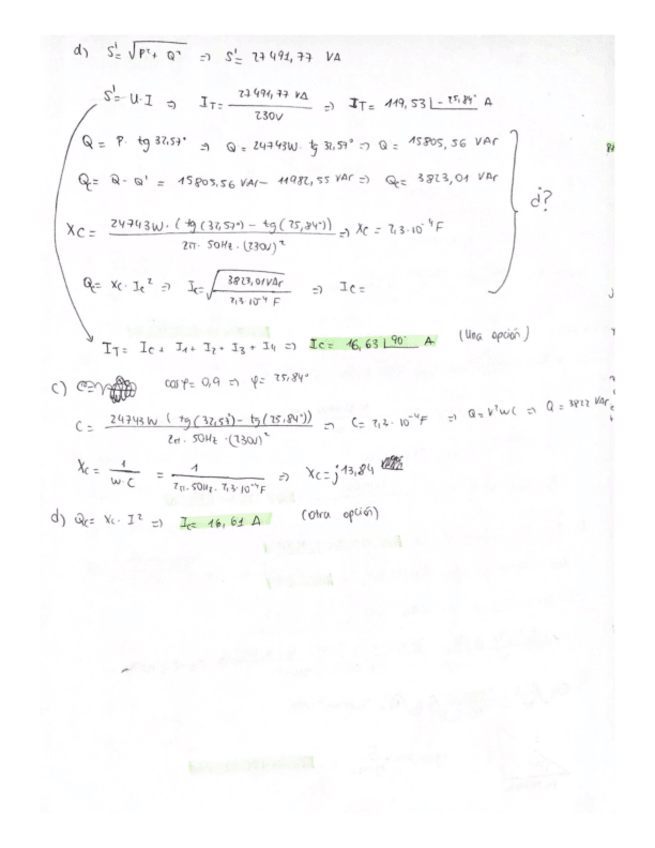 d) S' = √P² + Q² => S' = 27491,77 VA
S' = U·I => I_T = 27491,77 VA / 230V => I_T = 119,53 ∟-25,84° A
Q = P· tg 32,57° => Q = 24743W · tg 32,57° => Q = 15805,56 VAr
Qc = Q - Q' = 15805,56 VAr - 11982,55 VAr => Qc = 3823,01 VAr
Xc = 24743W · (tg(32,57°) - tg(25,84°)) / 2π · 50Hz · (230V)² => Xc = 2,3·10⁻⁴F
¿?
Qc = Xc · Ic² => Ic = √3823,01VAr / 2,3·10⁻⁴ F => Ic =
I_T = Ic + I1 + I2 + I3 + I4 => Ic = 16,63 ∟90° A (Una opción)
c) cosφ = 0,9 => φ = 25,84°
C = 24743W (tg(32,57°) - tg(25,84°)) / 2π · 50Hz · (230V)² => C = 2,3·10⁻⁴F => Q = V²WC => Q = 3822 VAr
Xc = 1 / W·C = 1 / 2π·50Hz·2,3·10⁻⁴F => Xc = j13,84
d) Qc = Xc · I² => Ic = 16,61 A (otra opción)